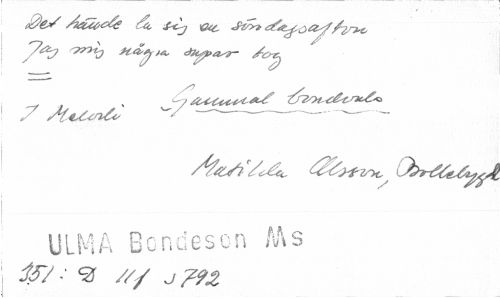 Det hände la sig en söndagsafton
Jag mig några supar tog
I Melodi Gammal bondvals
Matilda Olsson, Bollebygd
ULMA Bondeson Ms
351: D 11f s 792